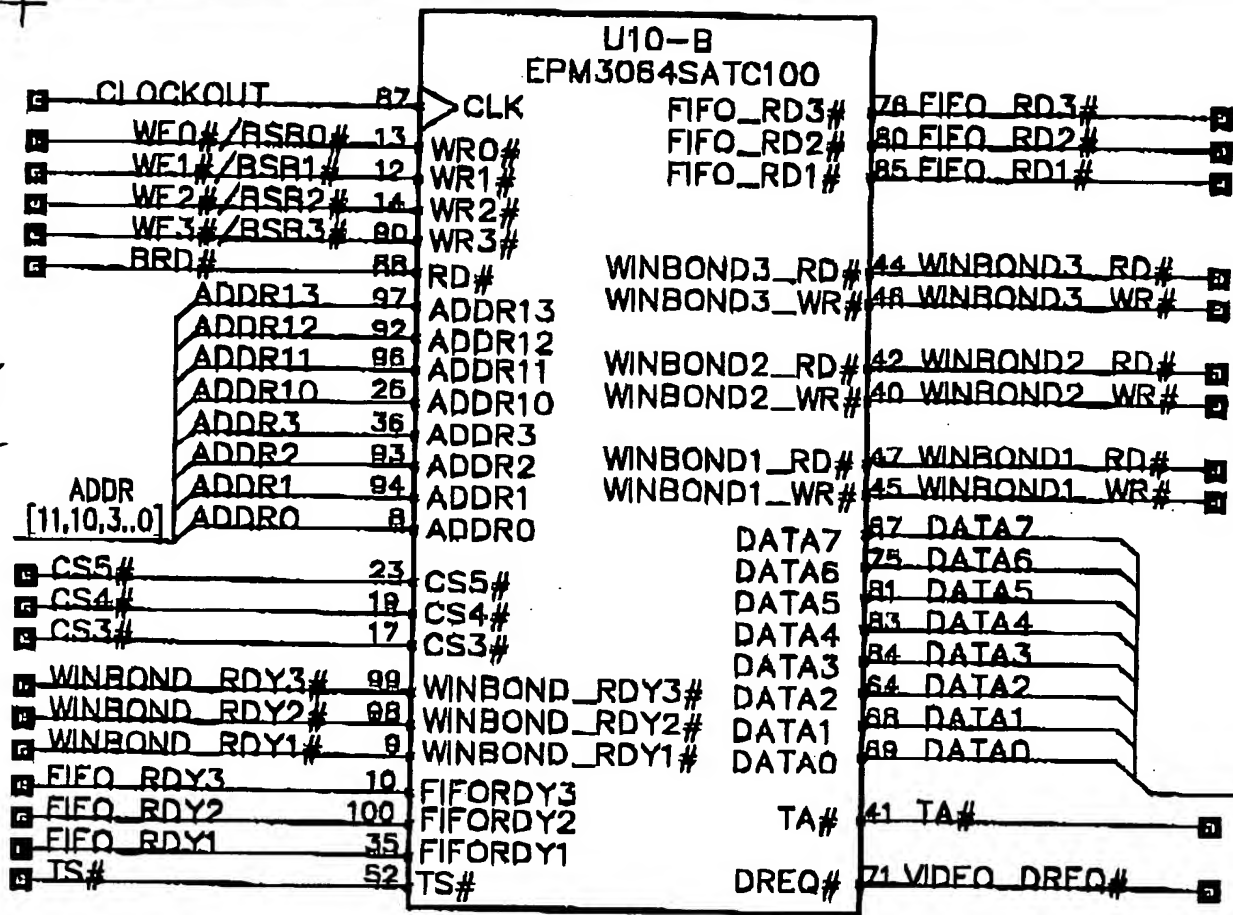 U10-B
EPM3064SATC100
CLOCKOUT 87 CLK
WE0#/BSB0# 13 WR0#
WE1#/BSB1# 12 WR1#
WE2#/BSB2# 14 WR2#
WE3#/BSB3# 90 WR3#
BRD# 88 RD#
ADDR13 97 ADDR13
ADDR12 92 ADDR12
ADDR11 96 ADDR11
ADDR10 25 ADDR10
ADDR3 36 ADDR3
ADDR2 93 ADDR2
ADDR1 94 ADDR1
ADDR0 8 ADDR0
ADDR
[11,10,3..0]
CS5# 23 CS5#
CS4# 19 CS4#
CS3# 17 CS3#
WINBOND_RDY3# 99 WINBOND_RDY3#
WINBOND_RDY2# 98 WINBOND_RDY2#
WINBOND_RDY1# 9 WINBOND_RDY1#
FIFO_RDY3 10 FIFORDY3
FIFO_RDY2 100 FIFORDY2
FIFO_RDY1 35 FIFORDY1
TS# 52 TS#
FIFO_RD3# FIFO_RD3#
FIFO_RD2# 80 FIFO_RD2#
FIFO_RD1# 85 FIFO_RD1#
WINBOND3_RD# 44 WINBOND3_RD#
WINBOND3_WR# WINBOND3_WR#
WINBOND2_RD# 42 WINBOND2_RD#
WINBOND2_WR# 40 WINBOND2_WR#
WINBOND1_RD# 47 WINBOND1_RD#
WINBOND1_WR# 45 WINBOND1_WR#
DATA7 67 DATA7
DATA6 75 DATA6
DATA5 81 DATA5
DATA4 83 DATA4
DATA3 84 DATA3
DATA2 64 DATA2
DATA1 68 DATA1
DATA0 69 DATA0
TA# 41 TA#
DREQ# 71 VIDEO_DREQ#